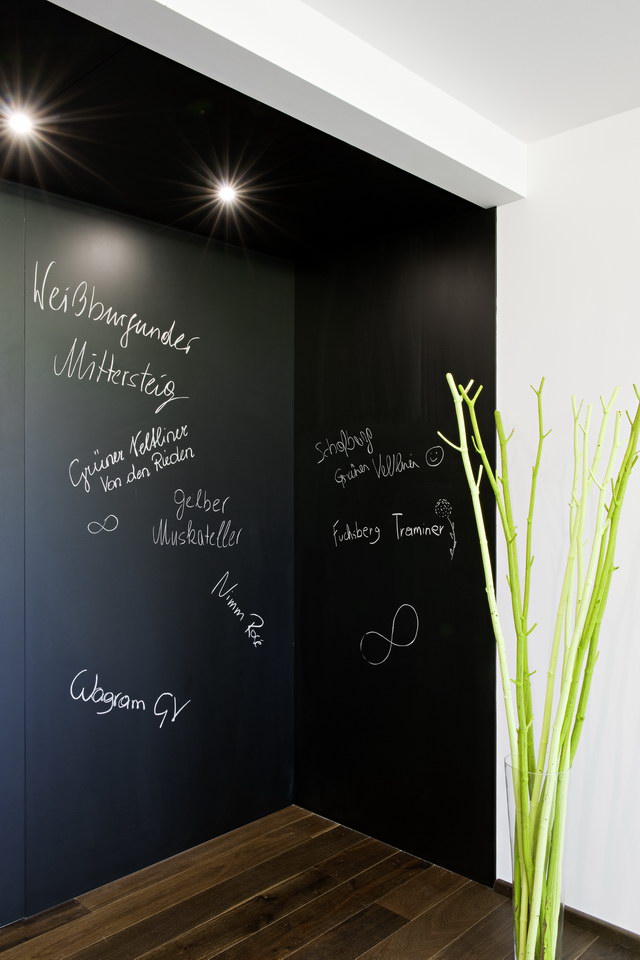 Weißburgunder
Mittersteig
Grüner Veltliner
Von den Rieden
Gelber
Muskateller
Nimm Rote
Wagram GV
Grüner Veltliner
Fuchsberg Traminer